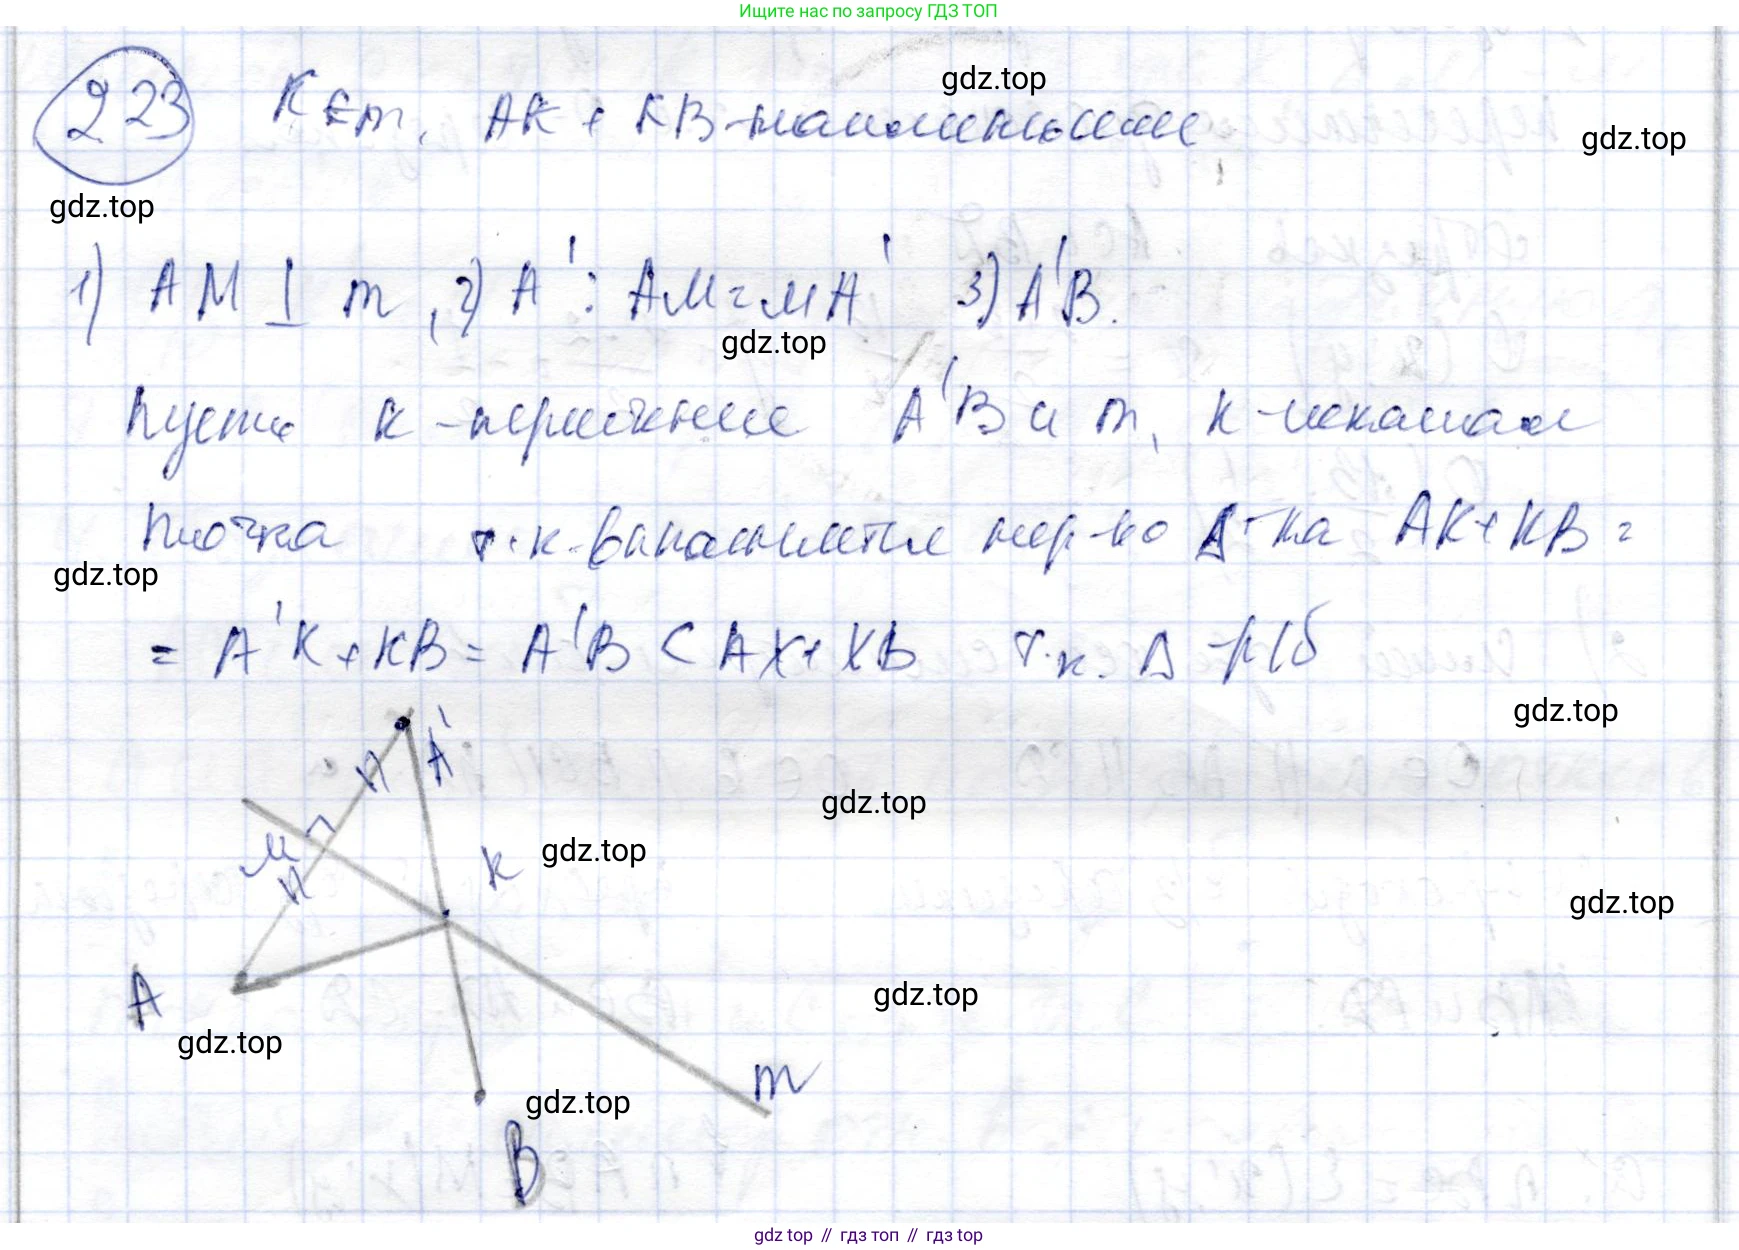 Ищите нас по запросу ГДЗ ТОП
223 K∈m, AK + KB - наименьшее
gdz.top
gdz.top
gdz.top
1) AM ⊥ m, 2) A' : AM = MA' 3) A'B.
gdz.top
Пусть K - пересечение A'B и m, K - искомая
точка т.к. выполняется нер-во Δ-ка AK + KB =
gdz.top
= A'K + KB = A'B < AX + XB т.к. Δ - р/б
gdz.top
A'
gdz.top
M
K
gdz.top
gdz.top
A
gdz.top
gdz.top
m
gdz.top
B
gdz.top // гдз топ // гдз.top